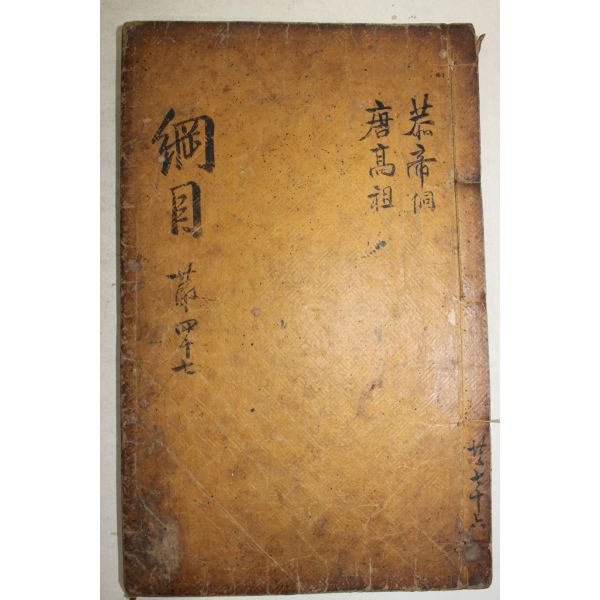 恭帝侗
唐高祖
綱目
第四十七
共七十六